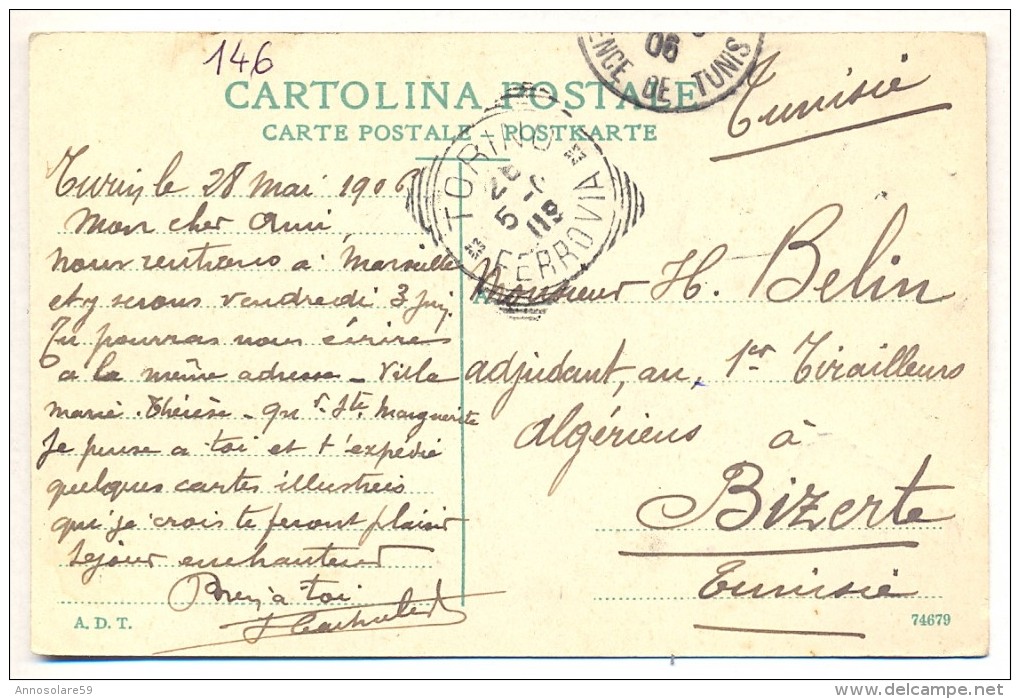 146
CARTOLINA POSTALE
CARTE POSTALE - POSTKARTE
ENCE DE TUNIS
06
Tunisie
TORINO
FERROVIA
Turin, le 28 mai 1906
Mon cher Ami,
nous rentrons à Marseille
et y serons vendredi 3
Tu pourras nous écrire
a la même adresse - Villa
Marie Thérèse - qu r Ste Marguerite
Je pense a toi et t'expédie
quelques cartes illustrées
qui je crois te feront plaisir
Séjour enchanteur
Bien à toi
Monsieur H. Belin
adjudant, au 1er Tirailleurs
algériens à
Bizerte
Tunisie
A. D. T.
74679
Annosolare59
www.delcampe.net